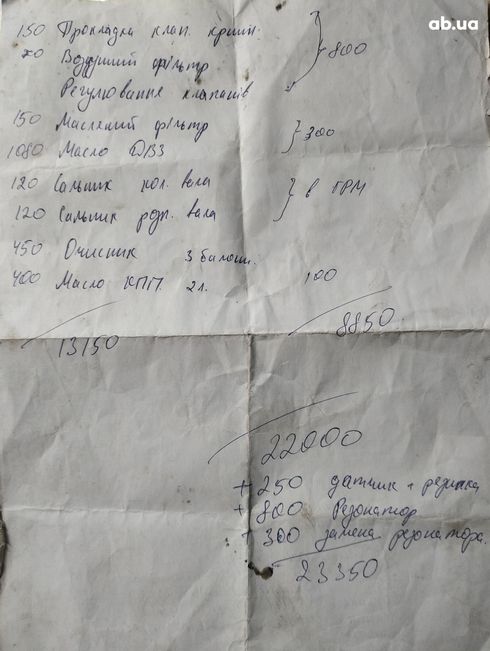 ab.ua
150 Прокладка клап. кришк.
70 Водушний фільтр } 800
Регулювання клапанів
150 Масляний фільтр
1080 Масло ДВЗ } 300
120 Сальник кол. вала
120 Сальник розп. вала } в ГРМ
450 Очисник 3 балони.
400 Масло КПП 2л. 100
13150 8850
22000
+ 250 датчик + резинка
+ 800 Резонатор
+ 300 замена резонатора.
23350